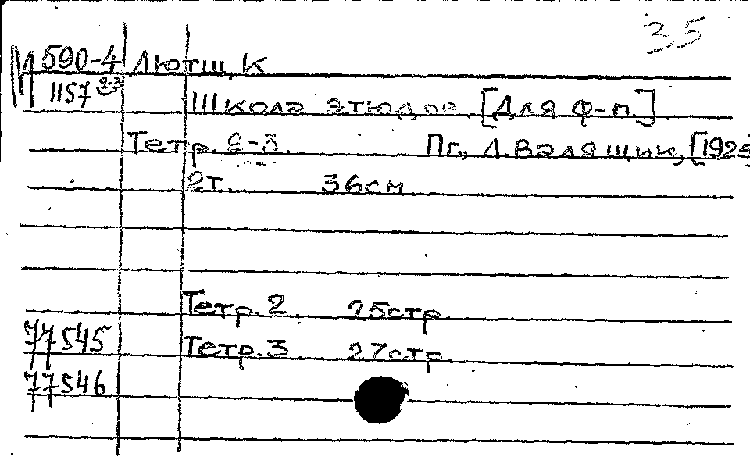 35
М 590-4 Лютш, К
1157 Школа этюдов [Для ф-п.]
Тетр. Пг., Л. Вэляшик, [192
2т. 36см
Тетр. 2. 25стр.
77545 Тетр. 3. 27стр.
77546